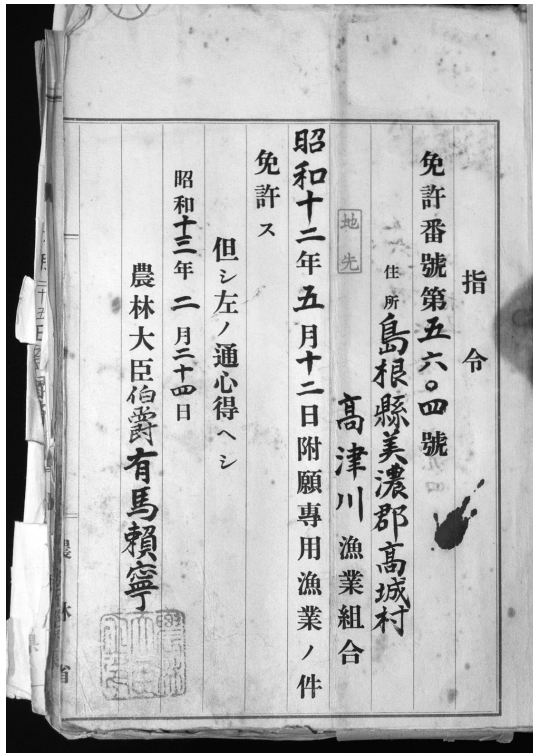 指令
免許番號第五六〇四號
住所 島根縣美濃郡高城村
地先
高津川漁業組合
昭和十二年五月十二日附願專用漁業ノ件
免許ス
但シ左ノ通心得ヘシ
昭和十三年二月二十四日
農林大臣伯爵有馬賴寧